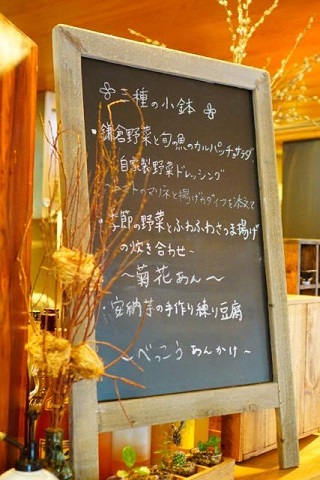 三種の小鉢
・鎌倉野菜と旬の魚のカルパッチョサラダ
自家製野菜ドレッシング
～トマトのマリネと揚げカダイフを添えて
・季節の野菜とふわふわさつま揚げ
の炊き合わせ~
～菊花あん～
・安納芋の手作り練り豆腐
～べっこうあんかけ～